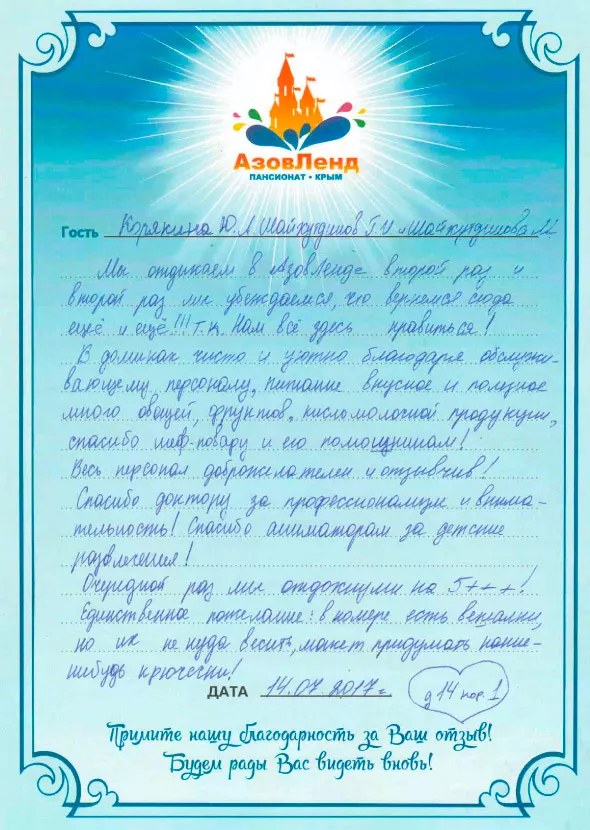 АзовЛенд
ПАНСИОНАТ • КРЫМ
Гость Корякина Ю.А. Шайхутдинов Г.И. и Шайхутдинова М.
Мы отдыхаем в АзовЛенде второй раз и
второй раз мы убеждаемся, что вернемся сюда
ещё и ещё!!! т.к. Нам всё здесь правиться!
В домиках чисто и уютно благодаря обслужи-
вающему персоналу, питание вкусное и полезное
много овощей, фруктов, кисломолочной продукции,
спасибо шеф-повару и его помощникам!
Весь персонал доброжелателен и отзывчив!
Спасибо доктору за профессионализм и внима-
тельность! Спасибо аниматорам за детские
развлечения!
Очередной раз мы отдохнули на 5+++!
Единственное пожелание: в номере есть вешалки,
но их не куда весить, может придумать какие-
нибудь крючечки!
ДАТА 14.07.2017г.
д 14 кор. 1
Примите нашу благодарность за Ваш отзыв!
Будем рады Вас видеть вновь!